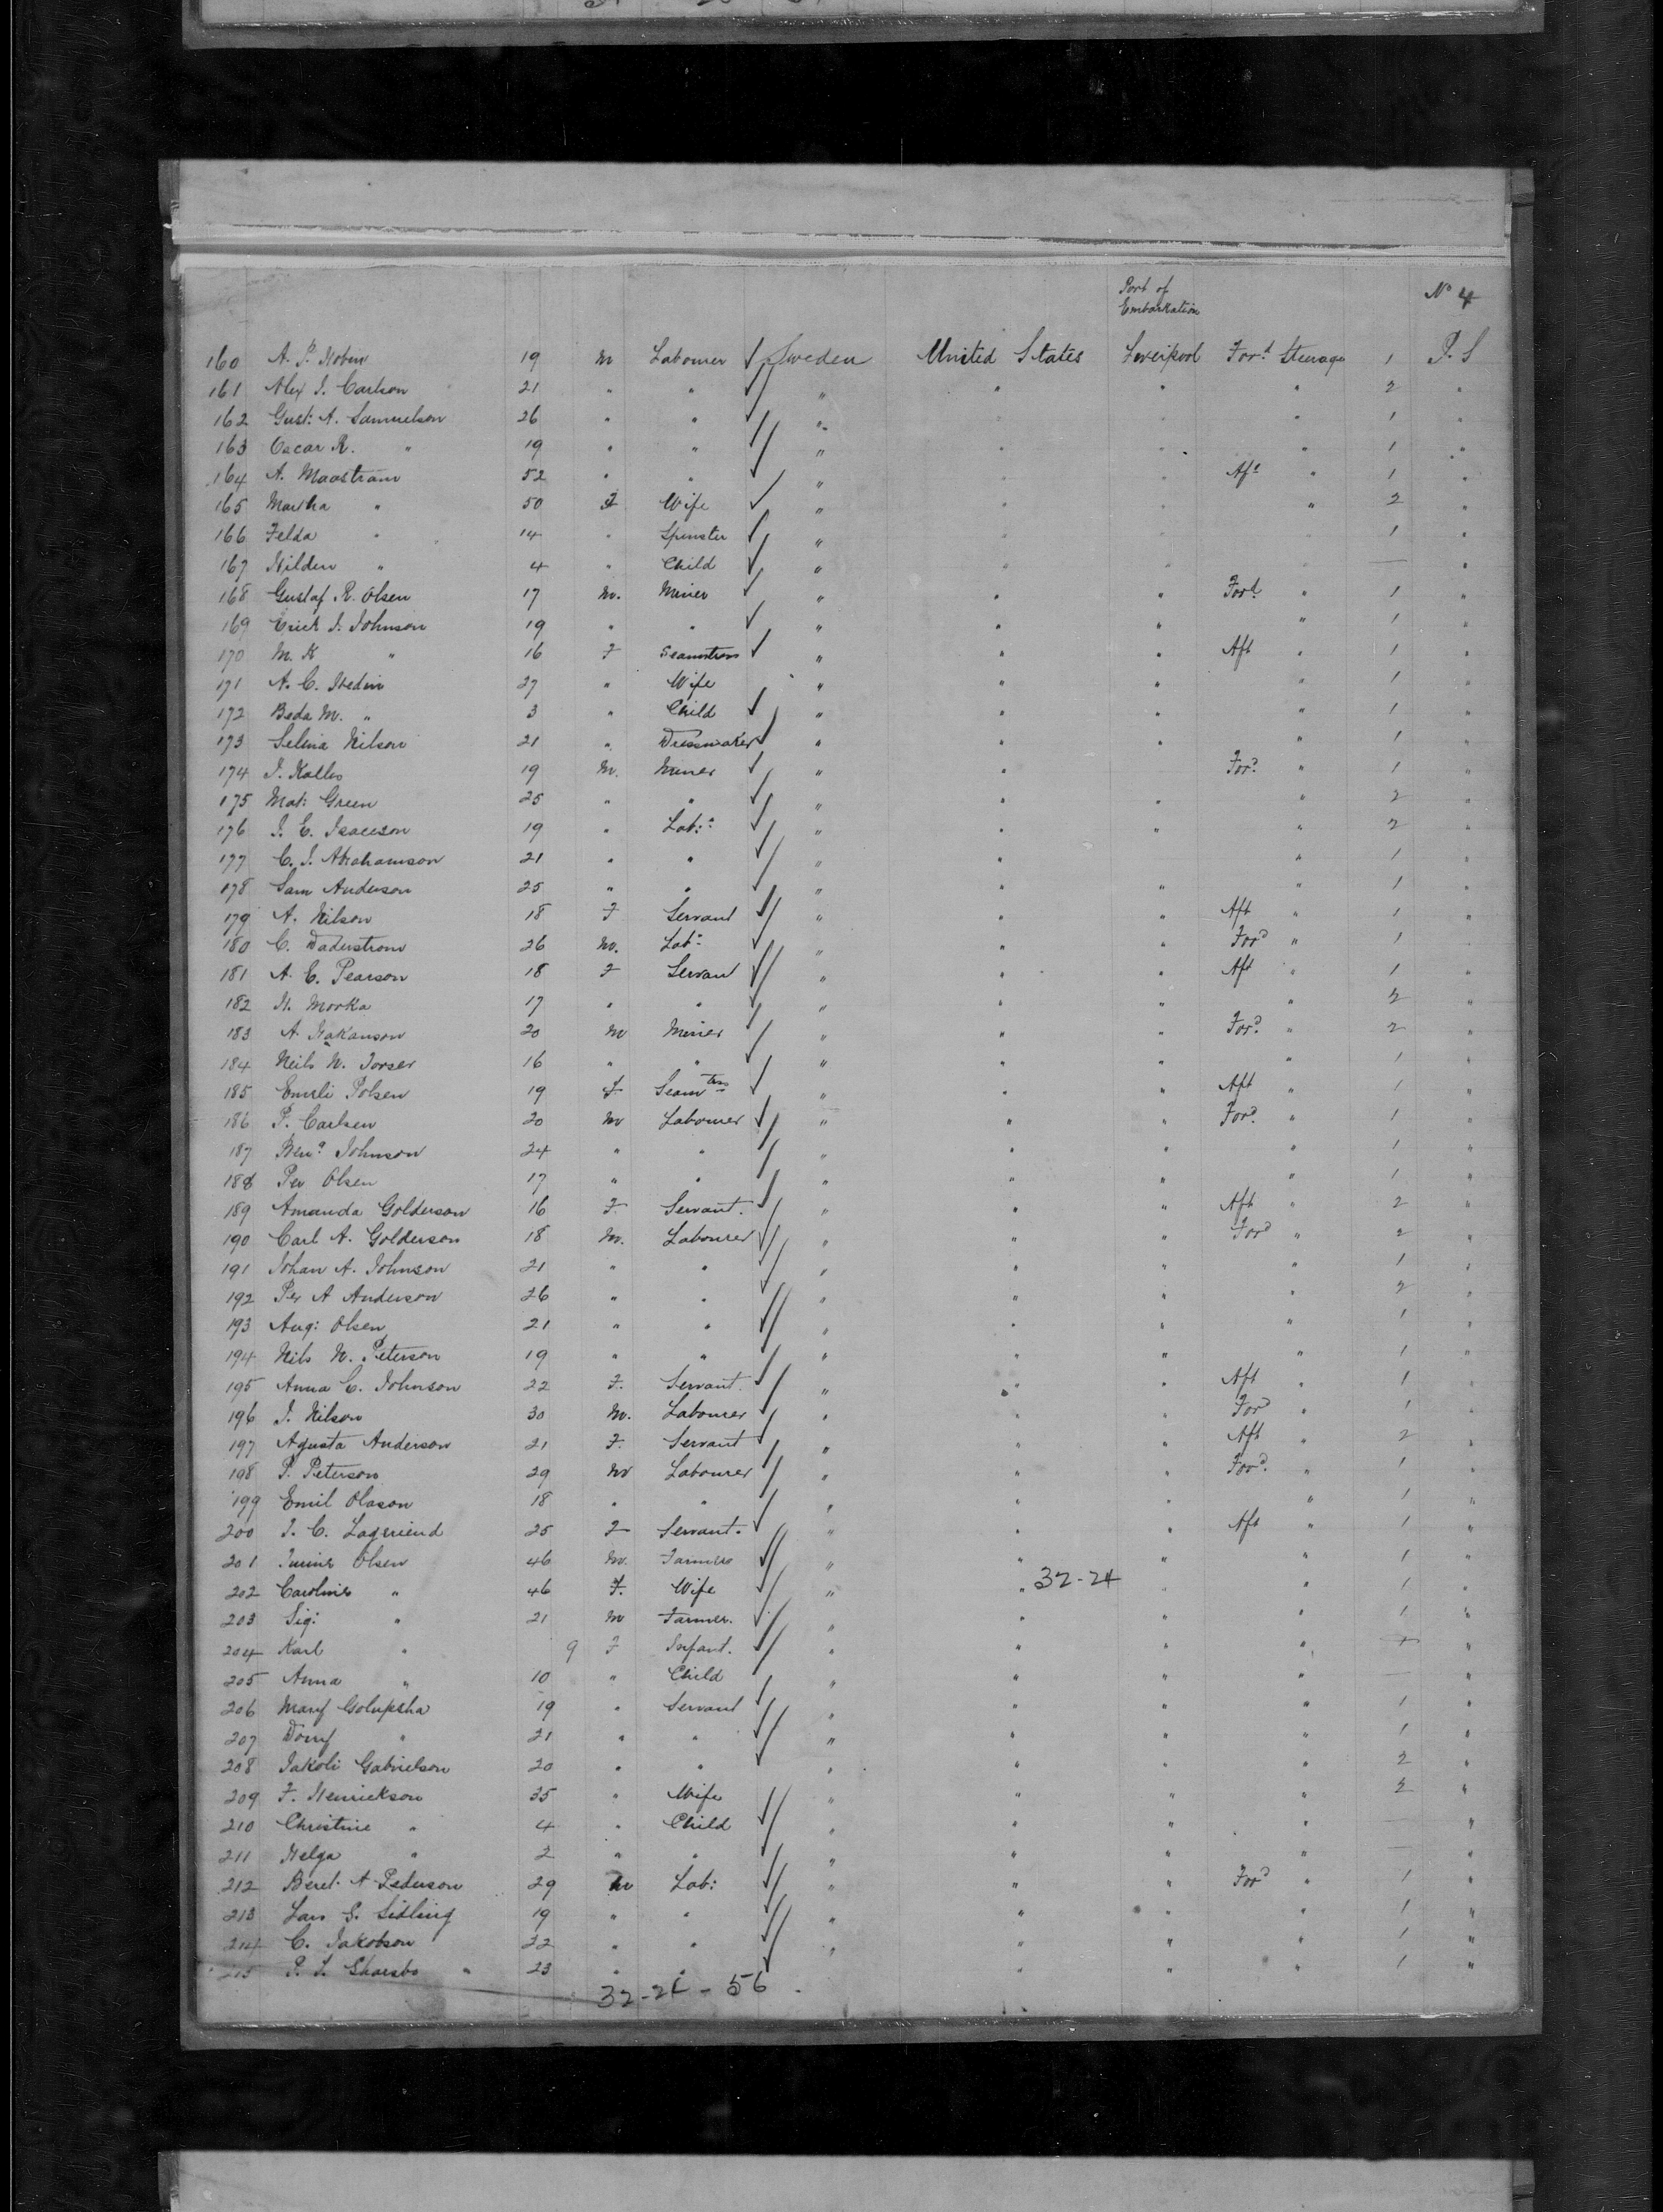 Port of
Embarkation
No 4
160 A. P. Nobin 19 m Labourer Sweden United States Liverpool Ford Steerage 1 P.S
161 Alex J. Carlson 21 " " " " " " 2 "
162 Gust: A. Samuelson 26 " " " " " " 1 "
163 Oscar R. " 19 " " " " " " 1 "
164 A. Maastram 52 " " " " " Aft " 1 "
165 Martha " 50 F Wife " " " " 2 "
166 Felda " 14 " Spinster " " " " 1 "
167 Hilden " 4 " Child " " " " — "
168 Gustaf R. Olsen 17 m. Miner " " " Ford " 1 "
169 Erick J. Johnson 19 " " " " " " 1 "
170 M. K " 16 F Seamstress " " " Aft " 1 "
171 A. C. Hedin 27 " Wife " " " " 1 "
172 Beda M. " 3 " Child " " " " 1 "
173 Selma Nilson 21 " Dressmaker " " " " 1 "
174 J. Kalls 19 M. Miner " " Ford " 1 "
175 Mat: Green 25 " " " " " " 2 "
176 J. E. Isacson 19 " Lab: " " " " 2 "
177 C. J. Abrahamson 21 " " " " " 1 "
178 Sam Anderson 25 " " " " " " 1 "
179 A. Nilson 18 F Servant " " " Aft " 1 "
180 C. Daderstrom 26 m. Lab: " " " Ford " 1 "
181 A. C. Pearson 18 F Servan " " " Aft " 1 "
182 H. Morka 17 " " " " " " 2 "
183 A. Hakanson 20 m Miner " " " Ford " 2 "
184 Neils N. Torser 16 " " " " " " 1 "
185 Emili Polsen 19 F Seamtrss " " " Aft " 1 "
186 P. Carlsen 20 m Labourer " " " Ford " 1 "
187 Bena Johnson 24 " " " " " " 1 "
188 Per Olsen 17 " " " " " " 1 "
189 Amanda Golderson 16 F. Servant. " " " Aft " 2 "
190 Carl A. Golderson 18 M. Labourer " " " Ford " 2 "
191 Johan A. Johnson 21 " " " " " " 1 "
192 Per A Anderson 26 " " " " " " 2 "
193 Aug: Olsen 21 " " " " " " 1 "
194 Nils N. Peterson 19 " " " " " " 1 "
195 Anna C. Johnson 22 F. Servant. " " " Aft " 1 "
196 J. Nilson 30 M. Labourer " " " For " 1 "
197 Agusta Anderson 21 F. Servant " " " Aft " 2 "
198 P. Peterson 29 m Labourer " " " Ford. " 1 "
199 Emil Olason 18 " " " " " " 1 "
200 J. C. Lagerriend 25 F Servant. " " " Aft " 1 "
201 Olsen 46 M. Farmer " " " " 1 "
202 Carolines " 46 F. Wife " " 32-24 " " 1 "
203 Sig: " 21 m Farmer. " " " " 1 "
204 Karl " 9 F Infant. " " " " "
205 Anna " 10 " Child " " " " — "
206 Mary Golupsha 19 " Servant " " " " 1 "
207 Dorry " 21 " " " " " " 1 "
208 Jakoli Gabrielson 20 " " " " " " 2 "
209 F. Henrickson 35 " Wife " " " " 2 "
210 Christine " 4 " Child " " " " "
211 Helga " 2 " " " " " " — "
212 Berel. A Pederson 29 m Lab: " " " Ford " 1 "
213 Lars G. Sidling 19 " " " " " " 1 "
214 C. Jakobson 22 " " " " " " 1 "
215 P. J. " 23 " " " " " 1 "
32-24-56